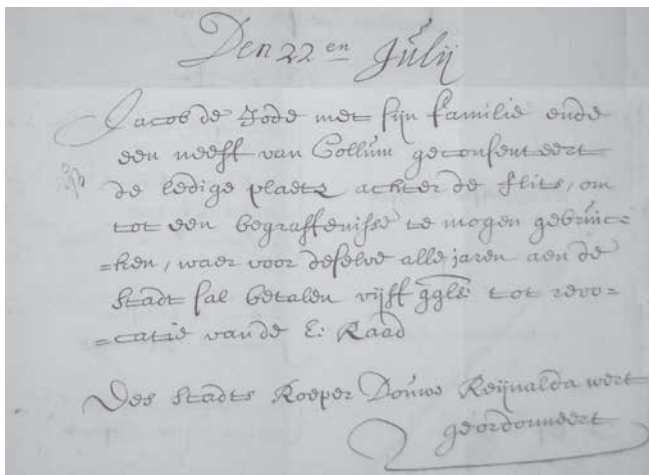 Den 22 en Julij
Jacob de Jode met sijn familie ende
een neeff van Collum geconsenteert
de ledige plaets achter de flits, om
tot een begraffenisse te mogen gebruic=
=ken, waer voor deselve alle jaren aen de
stadt sal betalen vijff ggls: tot revo=
=catie van de E: Raad
Des stadts Roeper Douwe Reijnalda wert
geordonneert